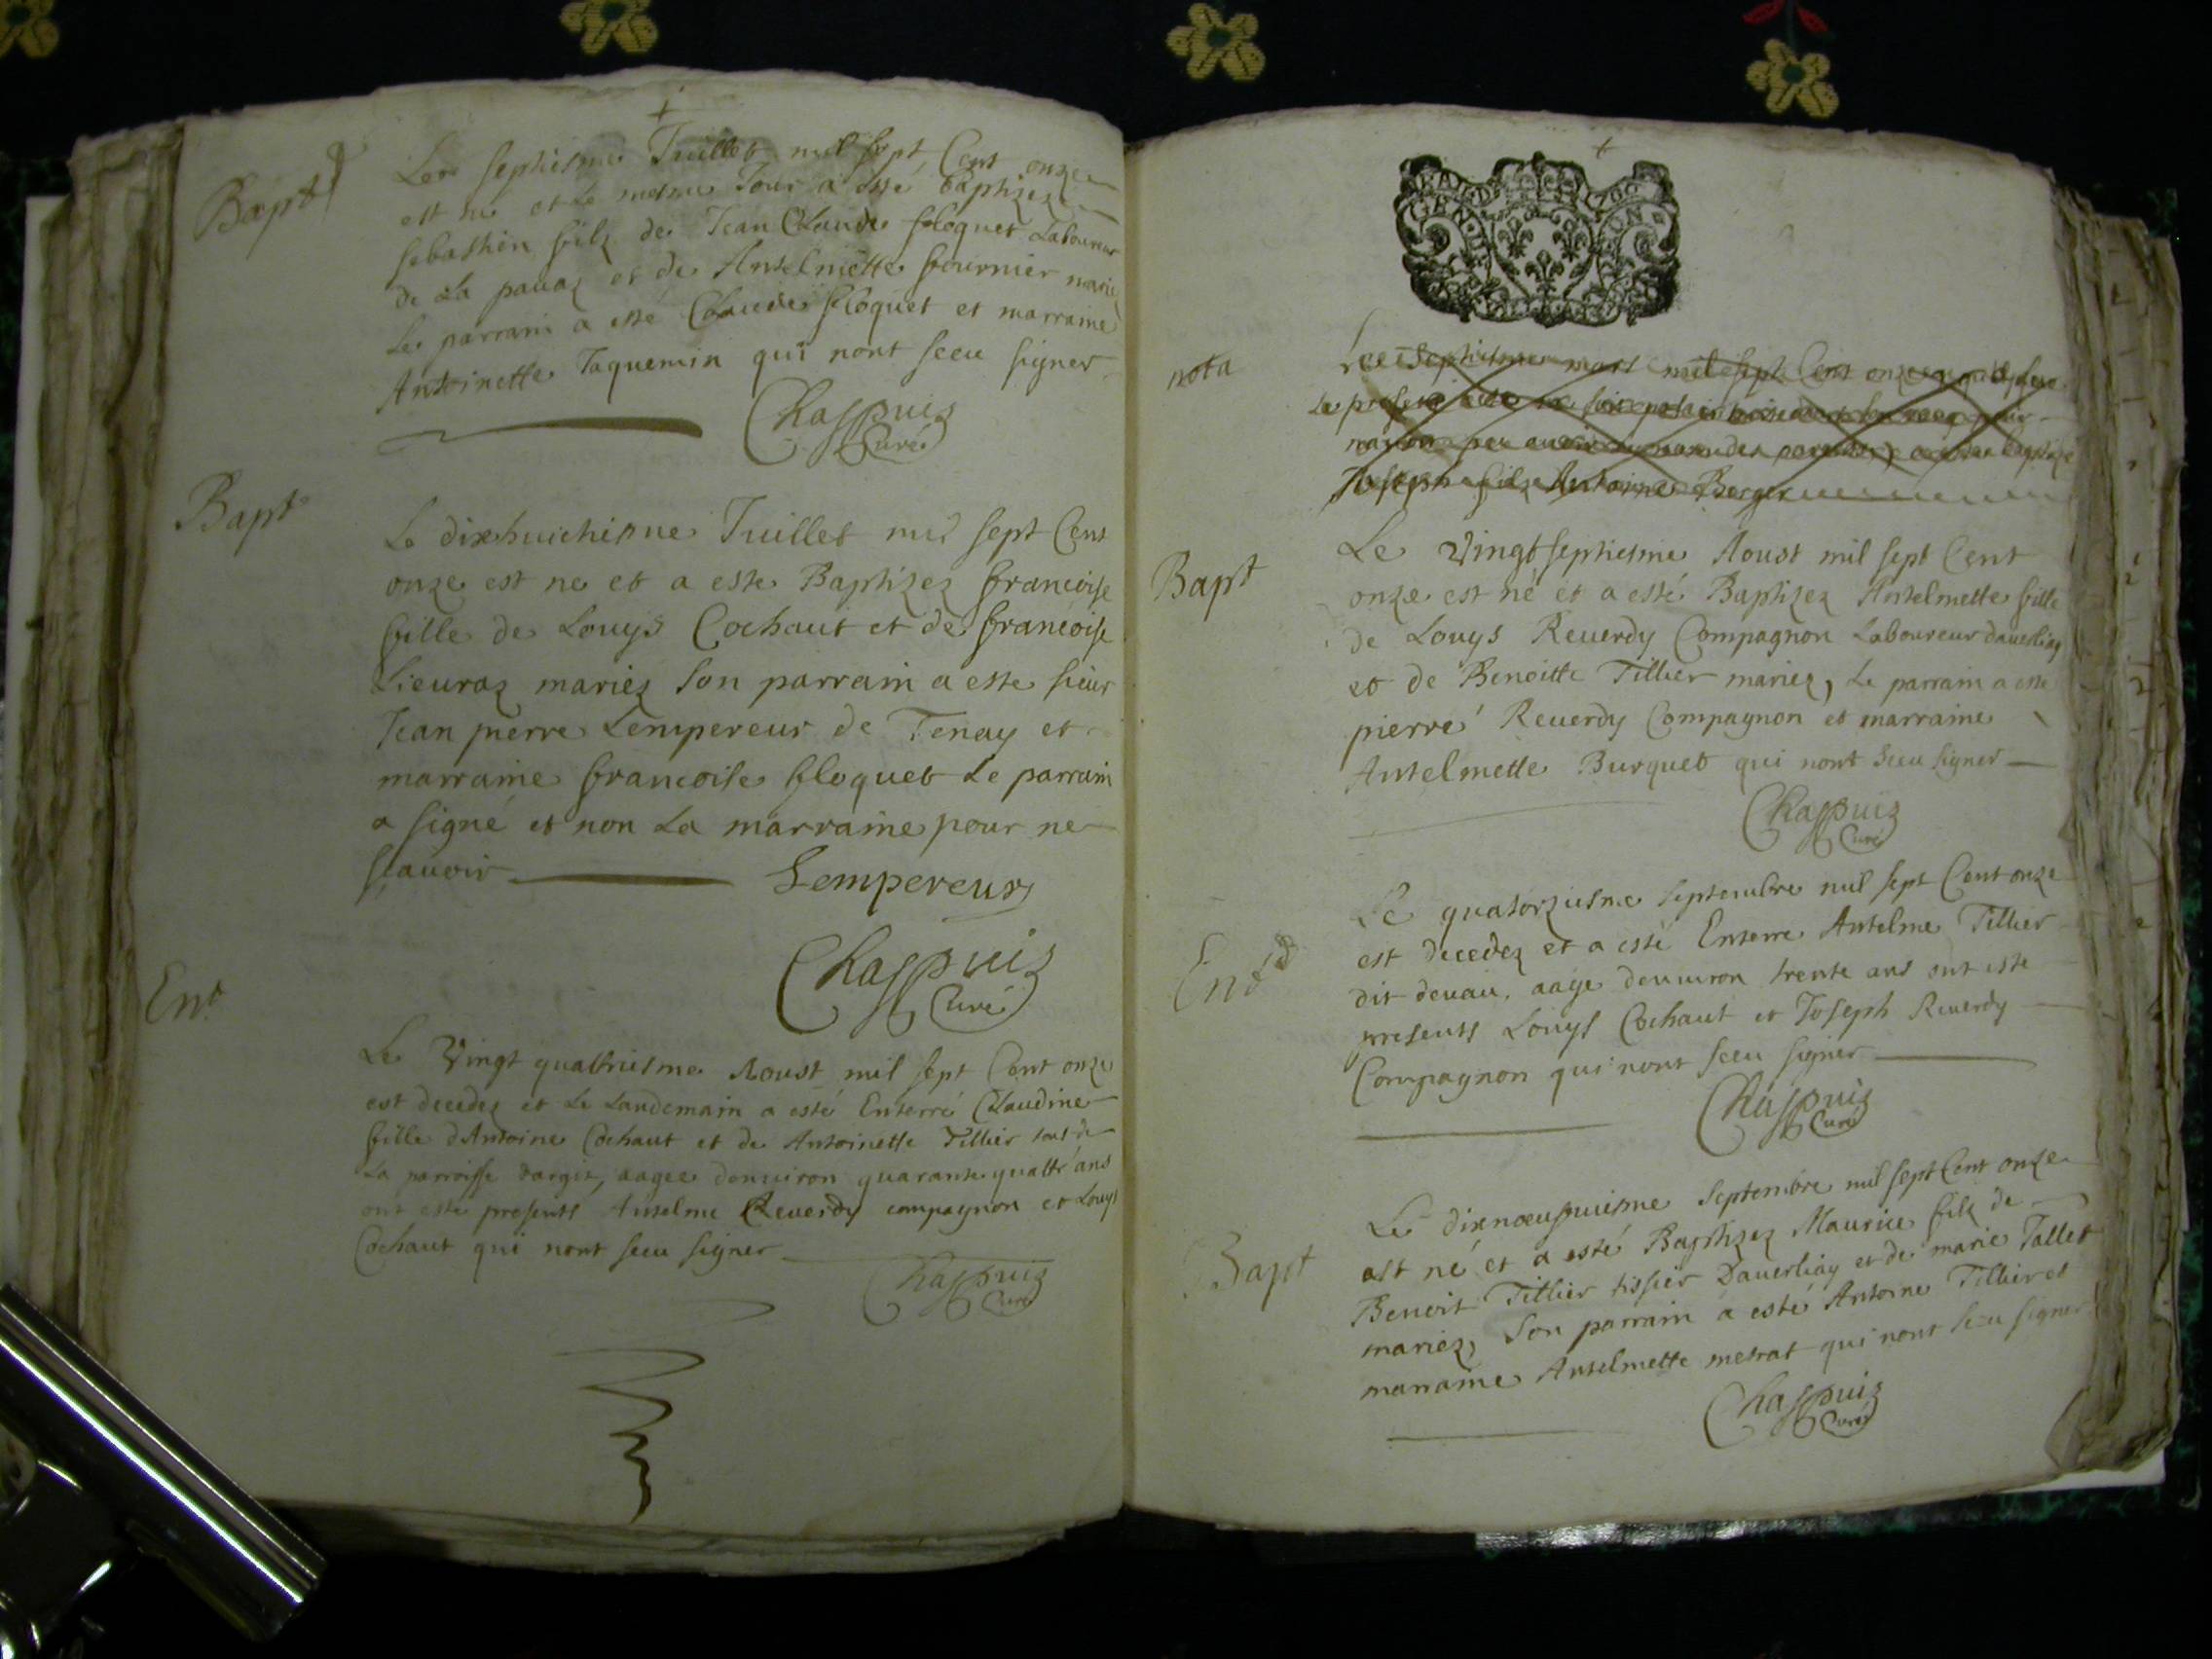 Bapt
Le septiesme Juillet mil sept Cent onze
est né et Le mesme Jour a esté baptisez
sebastien filz de Jean Claude floquet Laboureur
de La pauaz et de Antelmette fournier mariez
Le parrain a esté Claude floquet et marraine
Antoinette Jaquemin qui nont sceu signer
Chappuis
Curé
Bapt
Le dixhuictiesme Juillet mil sept Cent
onze est ne et a este Baptizez francoise
fille de Louys Cochaut et de francoise
Lieuraz mariez son parrain a este sieur
Jean pierre Lempereur de Tenay et
marraine francoise floquet Le parrain
a signé et non La marraine pour ne
scauoir Lempereur
Chappuis
Curé
Ent
Le Vingt quattriesme Aoust mil sept Cent onze
est decedez et Le Landemain a esté Enterré Claudine
fille dAntoine Cochaut et de Antoinette Tillier tous de
La parroisse dargis, aagee denuiron quarante quattr'ans
ont este presents Antelme Reuerdy compagnon et Louys
Cochaut qui nont sceu signer
Chappuis
Curé
GEN
nota
Le septiesme mars mil sept Cent onze
Le present acte
a esté baptizé
Joseph filz Antoine Berger
Bapt
Le Vingtseptiesme Aoust mil sept Cent
onze est né et a esté Baptizez Antelmette fille
de Louys Reuerdy Compagnon Laboureur dauerliaz
et de Benoitte Tillier mariez, Le parrain a esté
pierre Reuerdy Compagnon et marraine
Antelmette Burquet qui nont sceu signer
Chappuis
Curé
Ent
Le quatorziesme septembre mil sept Cent onze
est decedez et a esté Enterre Antelme Tillier
dit deuau, aage denuiron trente ans ont este
presents Louys Cochaut et Joseph Reuerdy
Compagnon qui nont sceu signer
Chappuis
Curé
Bapt
Le dixnoeufuiesme Septembre mil sept Cent onze
est né et a esté Baptizez Maurice filz de
Benoit Tillier tissier Dauerliaz et de marie Tallet
mariez, Son parrain a esté Antoine Tillier et
marraine Antelmette metrat qui nont sceu signer
Chappuis
Curé